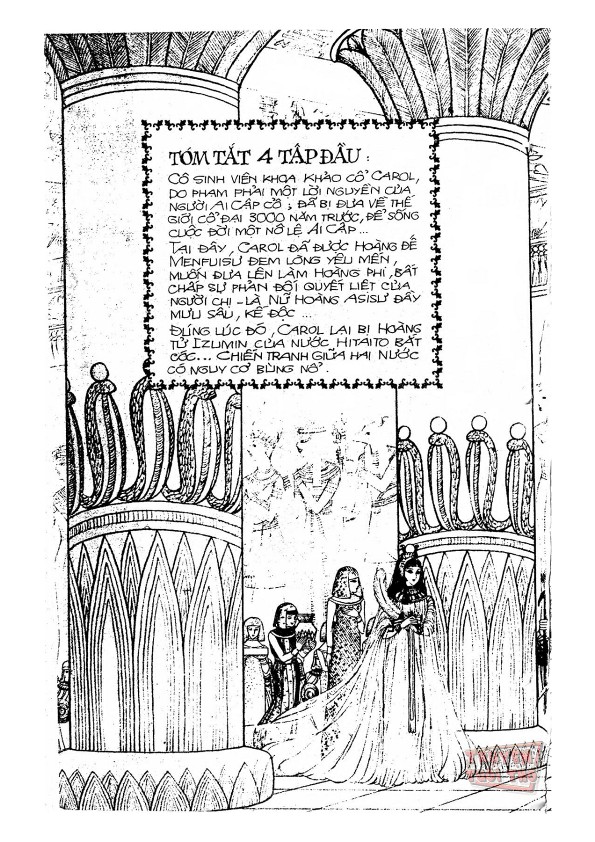 TÓM TẮT 4 TẬP ĐẦU :
CÔ SINH VIÊN KHOA KHẢO CỔ CAROL,
DO PHẠM PHẢI MỘT LỜI NGUYỀN CỦA
NGƯỜI AI CẬP CỔ ; ĐÃ BỊ ĐƯA VỀ THẾ
GIỚI CỔ ĐẠI 3000 NĂM TRƯỚC, ĐỂ SỐNG
CUỘC ĐỜI MỘT NÔ LỆ AI CẬP ...
TẠI ĐÂY, CAROL ĐÃ ĐƯỢC HOÀNG ĐẾ
MENFUISƯ ĐEM LÒNG YÊU MẾN,
MUỐN ĐƯA LÊN LÀM HOÀNG PHI, BẤT
CHẤP SỰ PHẢN ĐỐI QUYẾT LIỆT CỦA
NGƯỜI CHỊ - LÀ NỮ HOÀNG ASISƯ ĐẦY
MƯU SÂU, KẾ ĐỘC ...
ĐÚNG LÚC ĐÓ, CAROL LẠI BỊ HOÀNG
TỬ IZUMIN CỦA NƯỚC HITAITO BẮT
CÓC... CHIẾN TRANH GIỮA HAI NƯỚC
CÓ NGUY CƠ BÙNG NỔ.